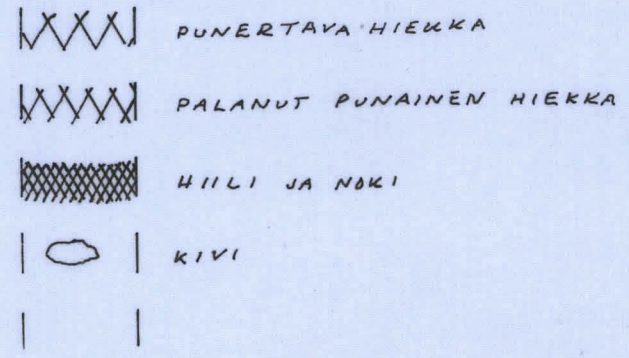 PUNERTAVA HIEKKA
PALANUT PUNAINEN HIEKKA
HIILI JA NOKI
KIVI